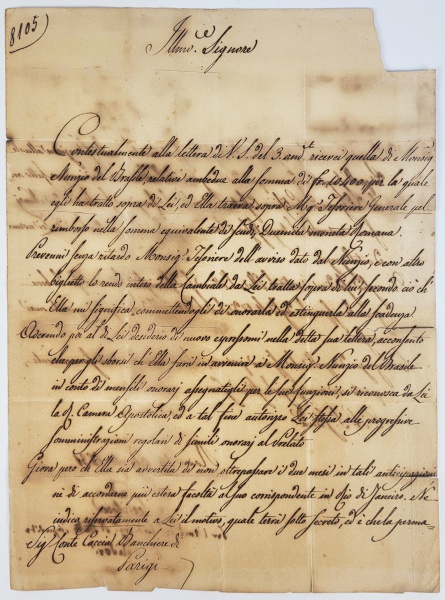 8105
Illmo. Signore
Contestualmente alla lettera di V. S. del 3. and.te ricevei quella di Monsig.
Nunzio del Brasile relativa ambedue alla somma di fr. 10400 per la quale
egli ha tratto sopra di Lei, ed Ella traeva sopra Mg. Tesoriere Generale pel
rimborso nella somma equivalente di scudi Duemila moneta Romana.
Prevenni senza ritardo Monsig. Tesoriere dell'avviso dato dal Nunzio, e con altro
biglietto lo rendo inteso della Cambiale da Lei tratta sopra di lui, secondo ciò ch'
Ella mi significa, commettendogli di onorarla ed estinguerla alla scadenza.
Aderendo poi al di Lei desiderio di nuovo espressomi nella detta sua lettera, acconsento
che per gli sborsi ch'Ella farà in avvenire a Monsig. Nunzio del Brasile
in conto di mensili onorarj assegnatigli per le sue funzioni, si riconosca da Lei
la R. Camera Apostolica, ed a tal fine autorizzo Lei stessa alle progressive
somministrazioni regolari di simili onorarj al Prelato
Giova però ch'Ella sia avvertita di non oltrepassare i due mesi in tali anticipazioni
nè di accordare più estesa facoltà al suo corrispondente in Rio di Janeiro. Ne
indico riservatamente a Lei il motivo, quale terrà sotto secreto, ed è che la perma-
Sig. Conte Caccia Banchiere di
Parigi